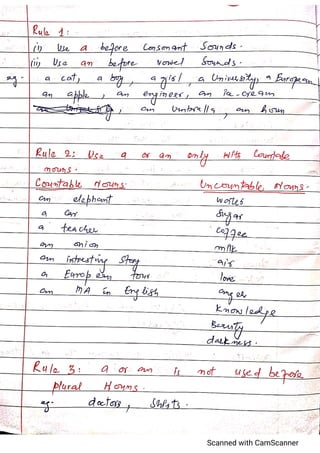 Rule 1:
(i) Use a before Consonant Sounds.
(ii) Use an before Vowel Sounds.
eg. a cat, a boy, a girl, a University, a European
an apple, an engineer, an ice-cream
an Umbrella, an hour
Rule 2: Use a or an only with Countable
nouns.
Countable Nouns: Uncountable Nouns.
an elephant water
a car Sugar
a teacher coffee
an onion milk
an intresting Story air
a European tour love
an MA in English anger
Knowledge
Beauty
darkness.
Rule 3: a or an is not used before
plural Nouns.
eg. doctors, Shirts.
Scanned with CamScanner